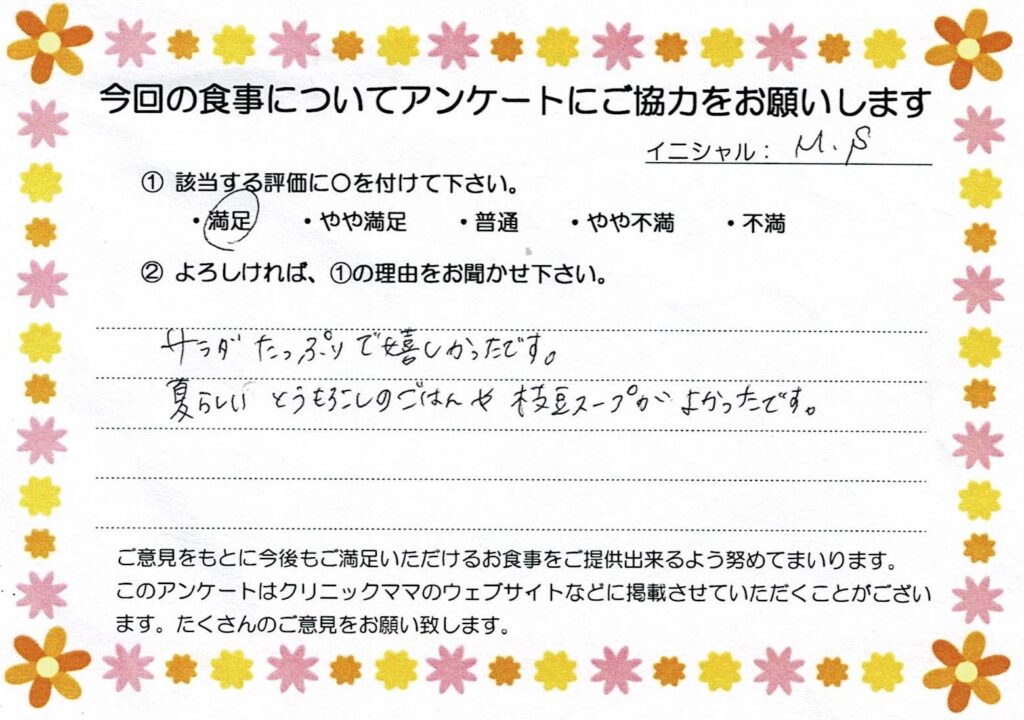 今回の食事についてアンケートにご協力をお願いします
イニシャル： M.S
① 該当する評価に〇を付けて下さい。
・満足 ・やや満足 ・普通 ・やや不満 ・不満
② よろしければ、①の理由をお聞かせ下さい。
サラダたっぷりで嬉しかったです。
夏らしい とうもろこしのごはんや 枝豆スープが よかったです。
ご意見をもとに今後もご満足いただけるお食事をご提供出来るよう努めてまいります。
このアンケートはクリニックママのウェブサイトなどに掲載させていただくことがござい
ます。たくさんのご意見をお願い致します。